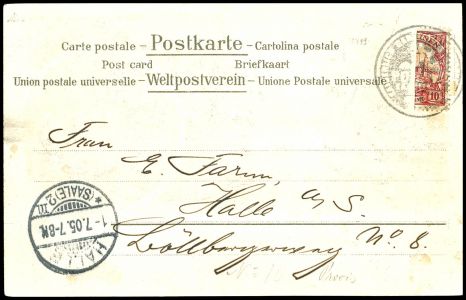 Carte postale - Postkarte - Cartolina postale
Post card Briefkaart
Union postale universelle - Weltpostverein - Unione Postale universale
10
Frau
E. Farm,
Halle a/S.
Böllbergerweg No. 8.
HALLE
*(SAALE)2 III
1-7.05.7-8N.